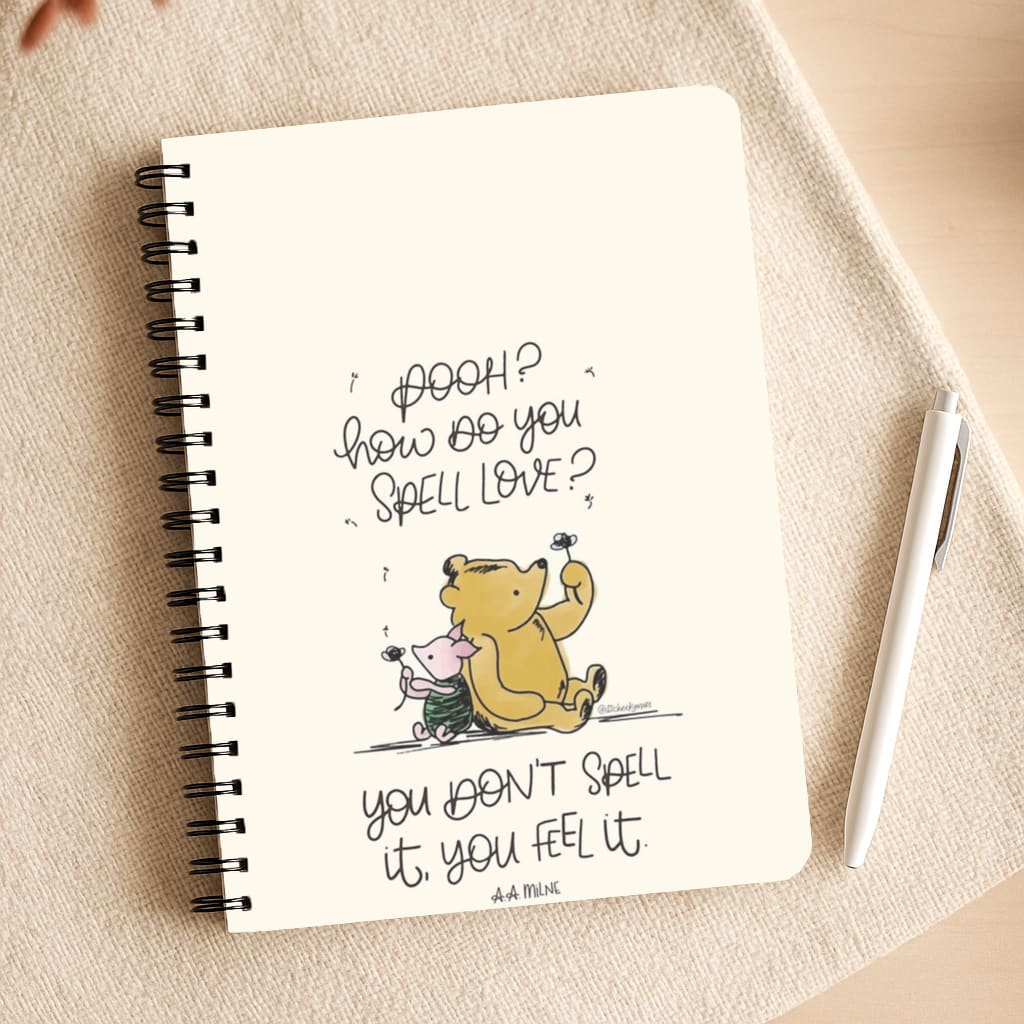 POOH?
how DO you
SPELL LOVE?
you DON'T SPELL
it, you FEEL it.
A.A. MILNE